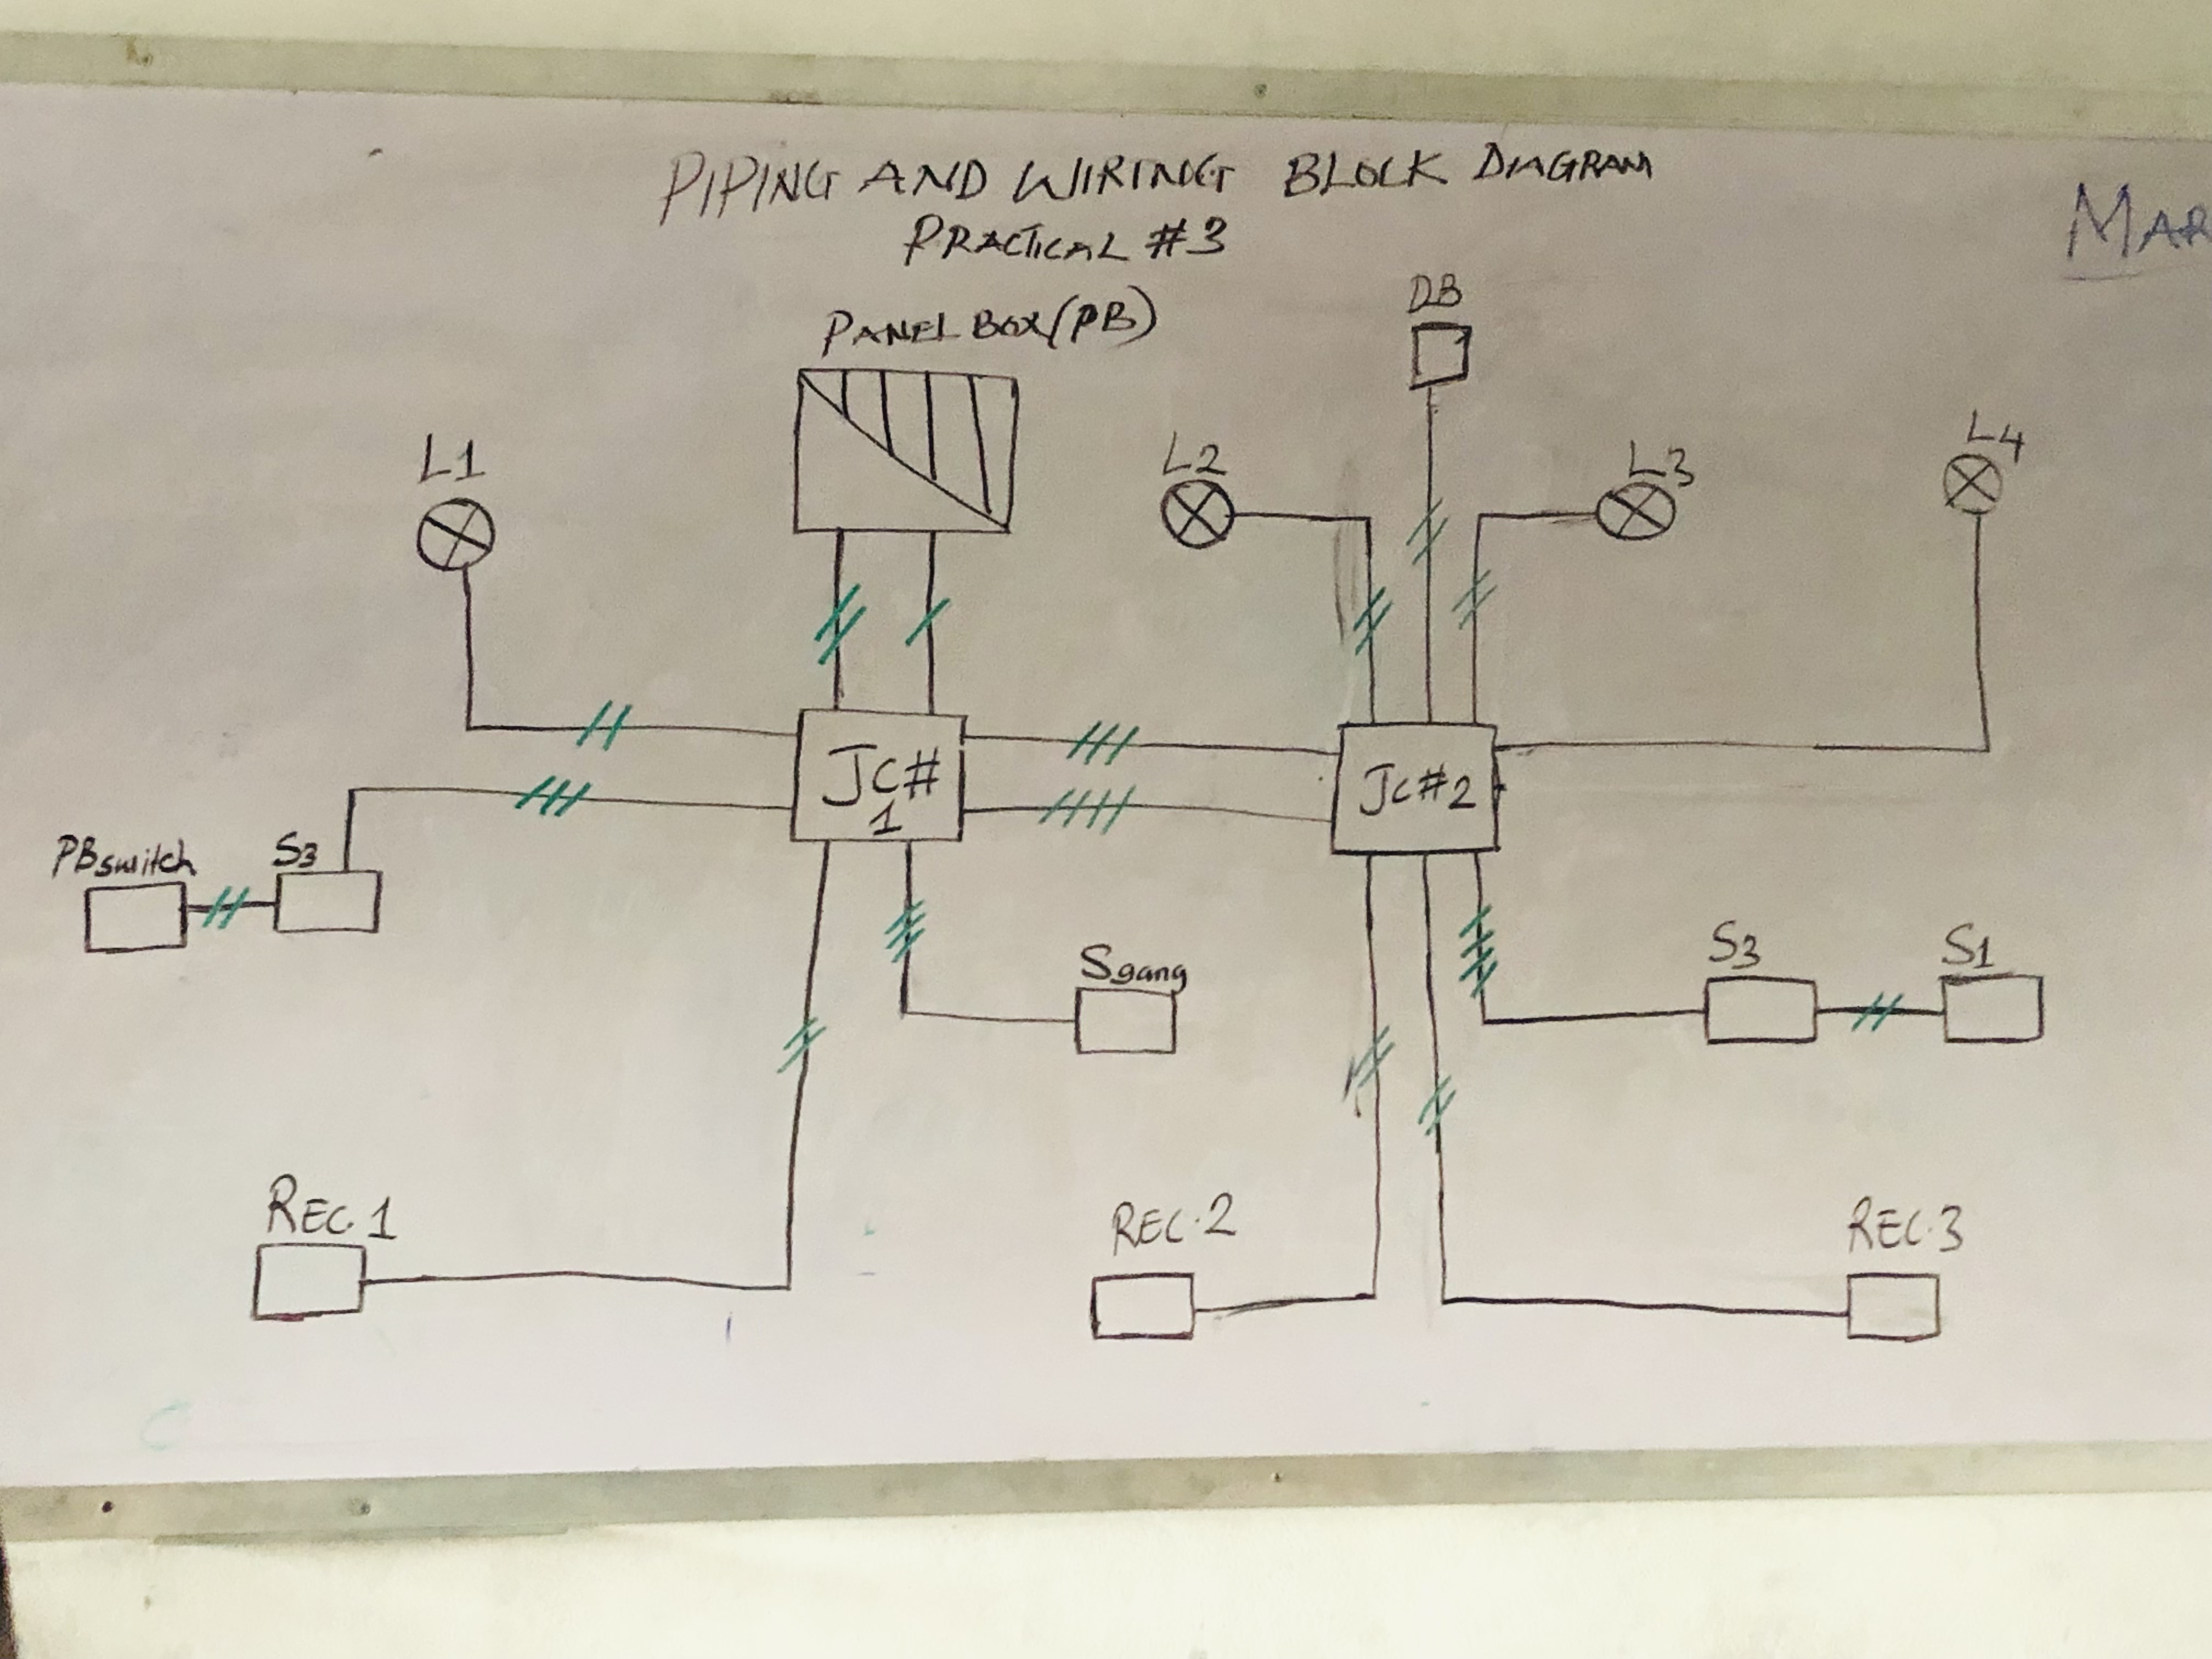 PIPING AND WIRING BLOCK DIAGRAM
PRACTICAL #3
MAR
PANEL BOX (PB)
DB
L1
L2
L3
L4
JC#
1
JC#2
PBswitch
S3
Sgang
S3
S1
REC.1
REC.2
REC.3